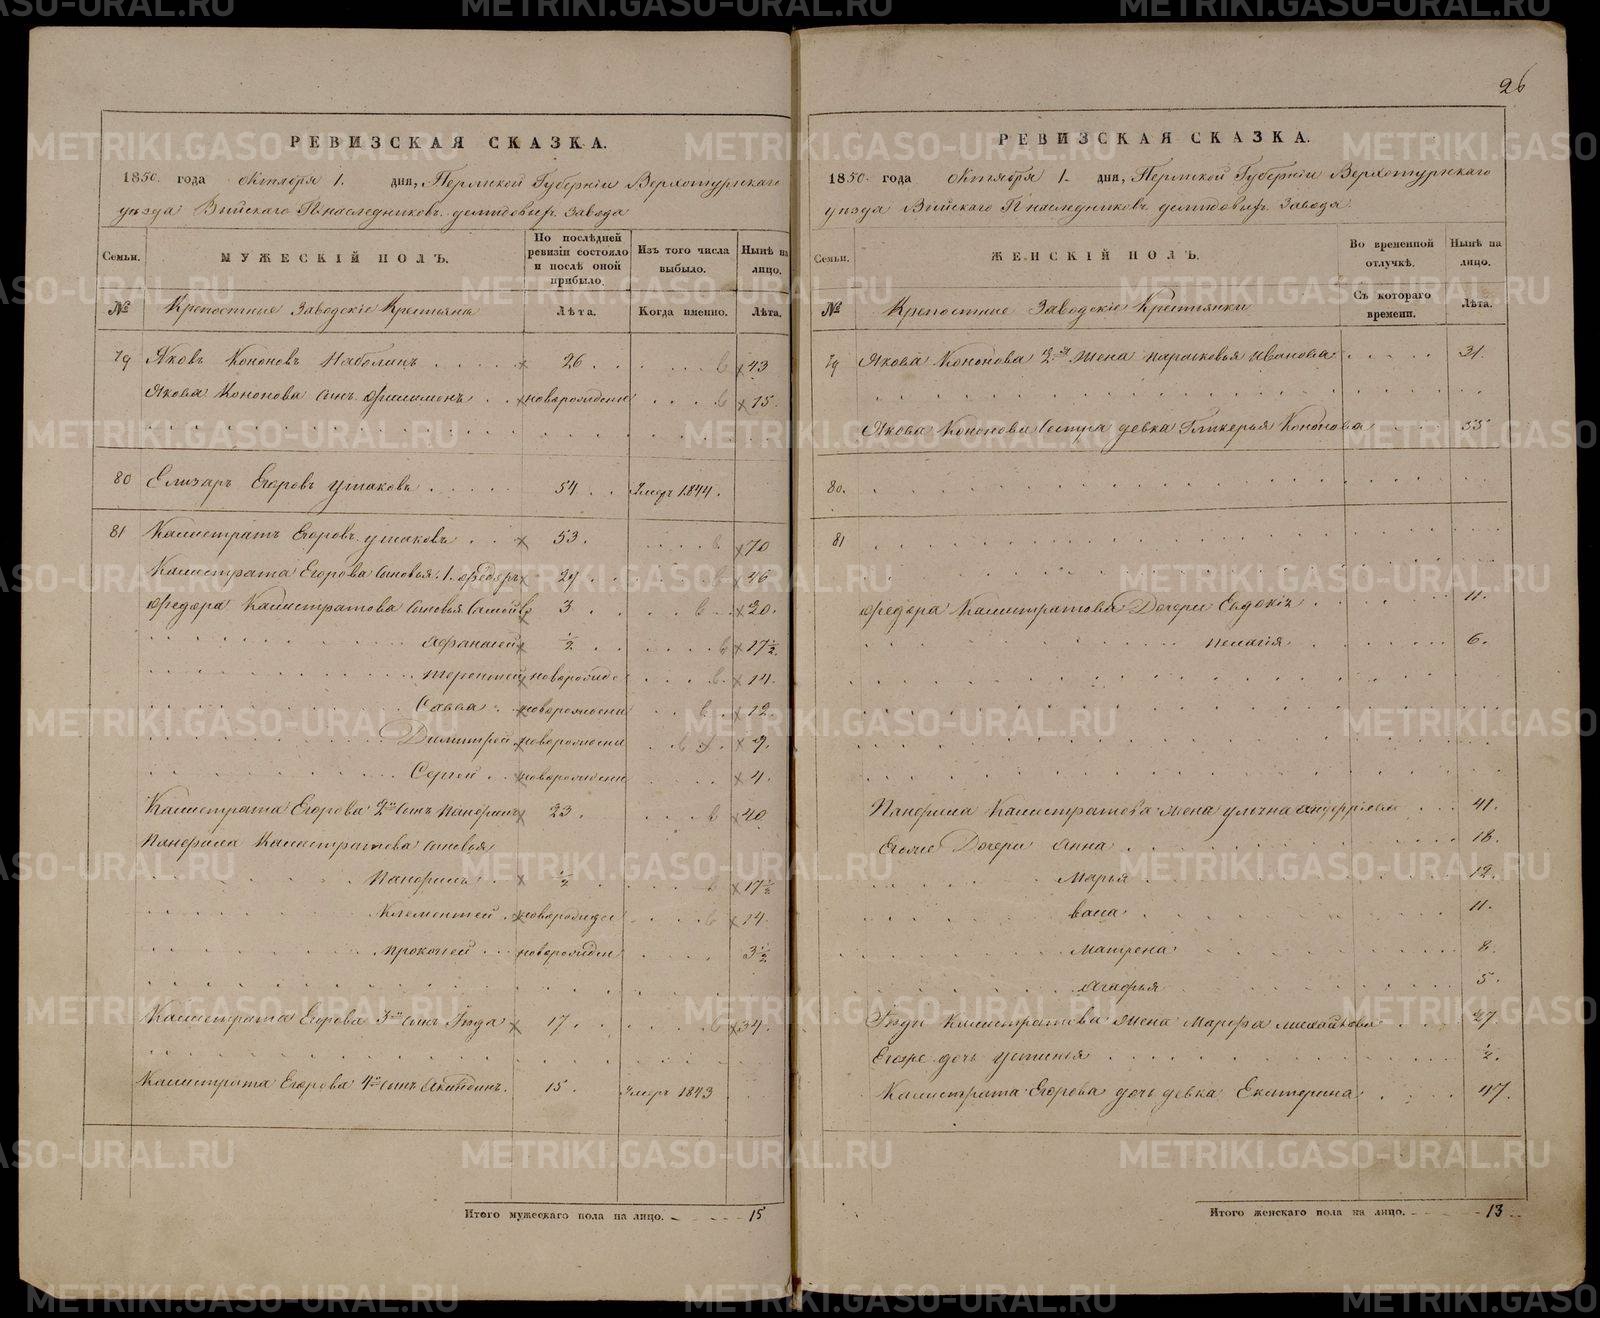 26
РЕВИЗСКАЯ СКАЗКА.
1850. года октября 1. дня, Пермской Губерніи Верхотурскаго
уѣзда Выйскаго Гг. наслѣдниковъ Демидовыхъ Завода
Семьи.
МУЖЕСКІЙ ПОЛЪ.
По послѣдней ревизіи состояло и послѣ оной прибыло.
Изъ того числа выбыло.
Нынѣ на лицо.
№
Крепостные Заводскіе Крестьяне
Лѣта.
Когда именно.
Лѣта.
79 Яковъ Кононовъ 26 43
Якова Кононова сынъ Филимонъ новорожден 15.
80 Елизаръ Егоровъ Ушаковъ 54 Умеръ 1844.
81 Калистратъ Егоровъ Ушаковъ 53. 70
Калистрата Егорова сыновья 1. Федоръ 29 46
Федора Калистратова сыновья 3 20.
Афанасей ½ 17½.
Терентей новорожде 14.
Савва новорожден 12
Димитрей новорожден 9.
Сергей новорожден 4.
Калистрата Егорова 2й сынъ Панфилъ 23. 40
Панфила Калистратова сыновья
Панфилъ ½ 17½
Клементей новорожде 14.
Прокопей новорожден 3½
Калистрата Егорова 3й сынъ Гѵда 17. 34.
Калистрата Егорова 4й сынъ Акиндинъ. 15. Умеръ 1843
Итого мужескаго пола на лицо. 15
РЕВИЗСКАЯ СКАЗКА.
1850. года октября 1. дня, Пермской Губерніи Верхотурскаго
уѣзда Выйскаго Гг. наслѣдниковъ Демидовыхъ Завода
Семьи.
ЖЕНСКІЙ ПОЛЪ.
Во временной отлучкѣ.
Нынѣ на лицо.
№
Крепостные Заводскіе Крестьянки
Съ котораго времени.
Лѣта.
79 Якова Кононова 2я жена Парасковья Иванова 31.
Якова Кононова сестра девка Гликерья Кононова 35
80.
81
Федора Калистратова Дочери Евдокія 11.
Пелагія 6.
Панфила Калистратова жена 41.
Егоже Дочери Анна 18.
Марья 12.
Васа 11.
Матрена 8.
Агафья 5.
Калистратова жена Марфа Михайлова 27.
Егоже дочь Устинья ½.
Калистрата Егорова дочь девка Екатерина 47.
Итого женскаго пола на лицо. 13
METRIKI.GASO-URAL.RU